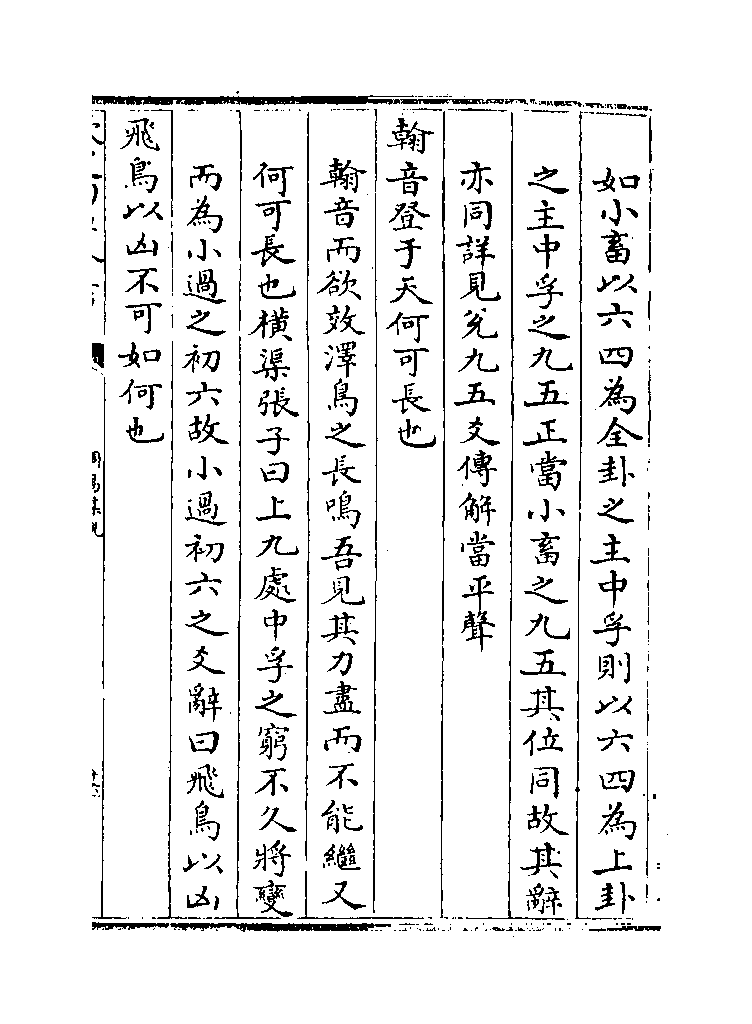 如小畜以六四為全卦之主中孚則以六四為上卦
之主中孚之九五正當小畜之九五其位同故其辭
亦同詳見兊九五爻傳解當平聲
翰音登于天何可長也
翰音而欲效澤鳥之長鳴吾見其力盡而不能繼又
何可長也橫渠張子曰上九處中孚之窮不久將變
而為小過之初六故小過初六之爻辭曰飛鳥以凶
飛鳥以凶不可如何也
周易集說